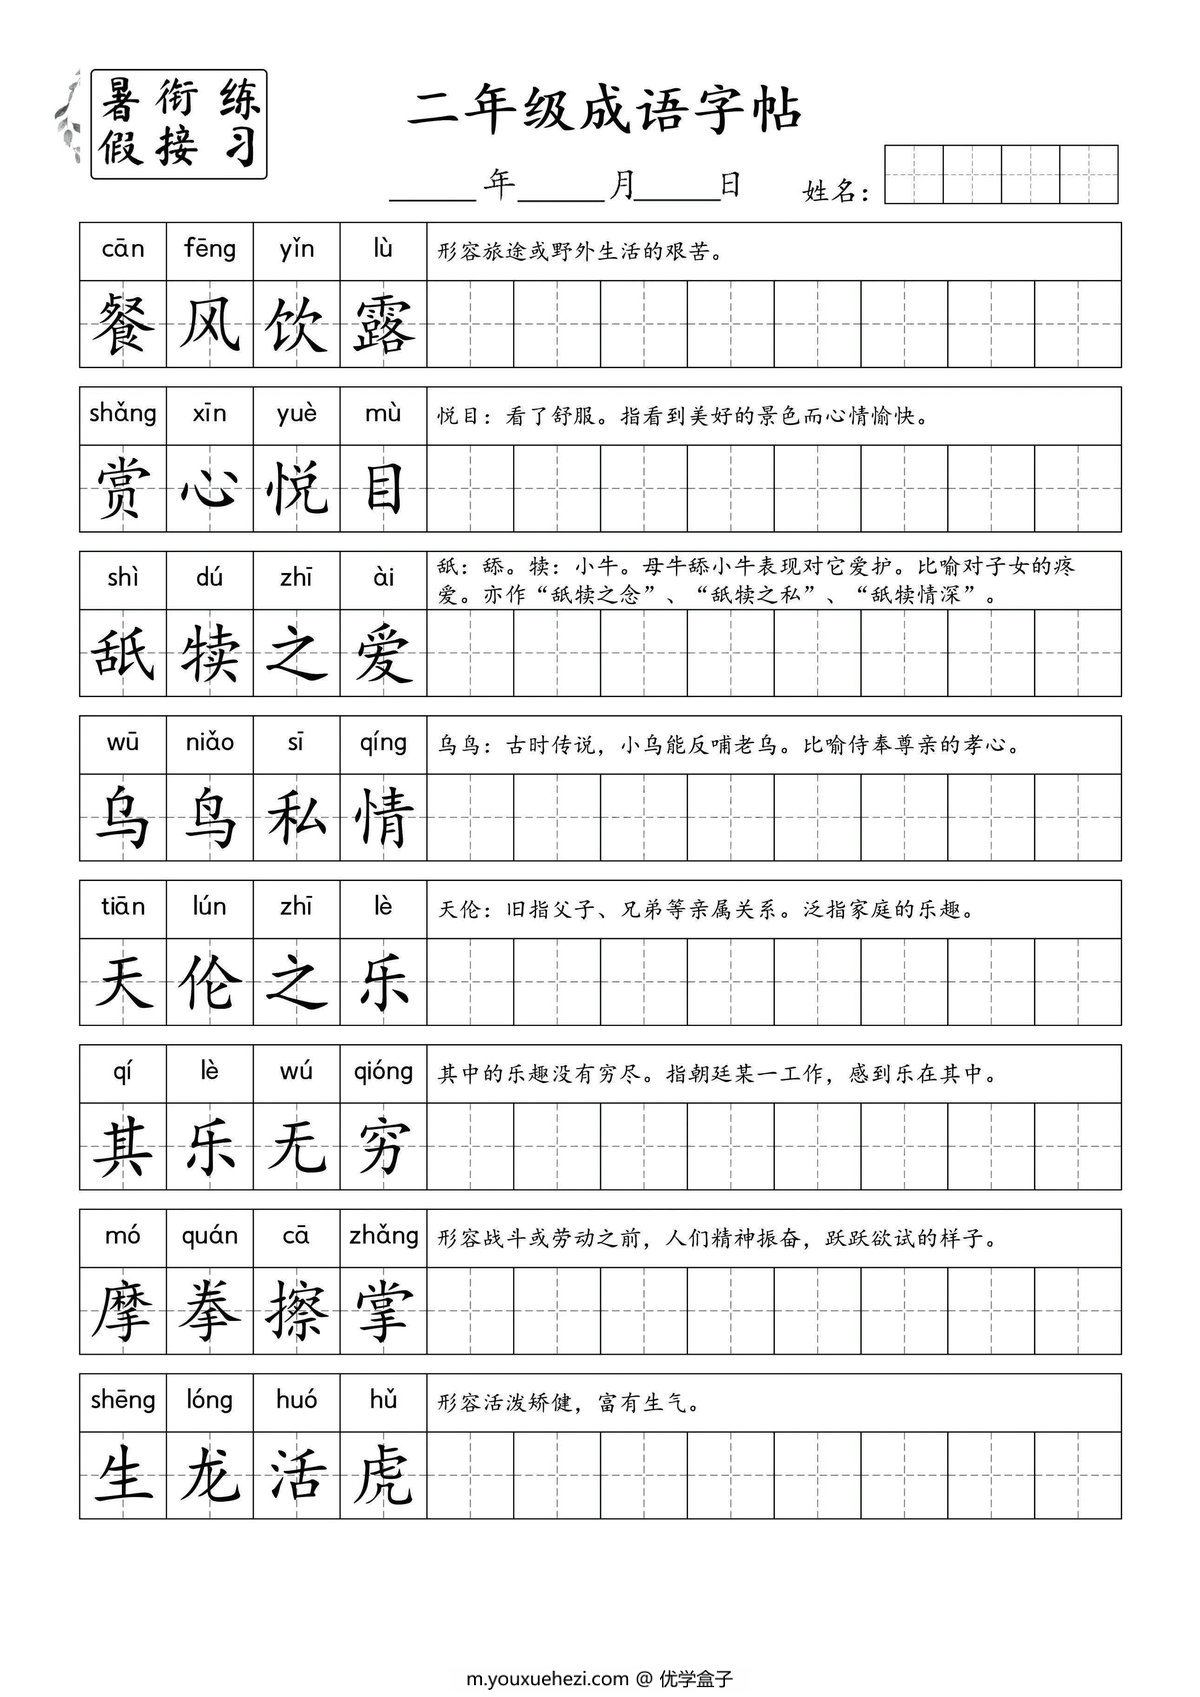 暑衔练
假接习
二年级成语字帖
年 月 日 姓名：
cān fēng yǐn lù 形容旅途或野外生活的艰苦。
餐风饮露
shǎng xīn yuè mù 悦目：看了舒服。指看到美好的景色而心情愉快。
赏心悦目
shì dú zhī ài 舐：舔。犊：小牛。母牛舔小牛表现对它爱护。比喻对子女的疼
爱。亦作“舐犊之念”、“舐犊之私”、“舐犊情深”。
舐犊之爱
wū niǎo sī qíng 乌鸟：古时传说，小乌能反哺老乌。比喻侍奉尊亲的孝心。
乌鸟私情
tiān lún zhī lè 天伦：旧指父子、兄弟等亲属关系。泛指家庭的乐趣。
天伦之乐
qí lè wú qióng 其中的乐趣没有穷尽。指朝廷某一工作，感到乐在其中。
其乐无穷
mó quán cā zhǎng 形容战斗或劳动之前，人们精神振奋，跃跃欲试的样子。
摩拳擦掌
shēng lóng huó hǔ 形容活泼矫健，富有生气。
生龙活虎
m.youxuehezi.com @ 优学盒子